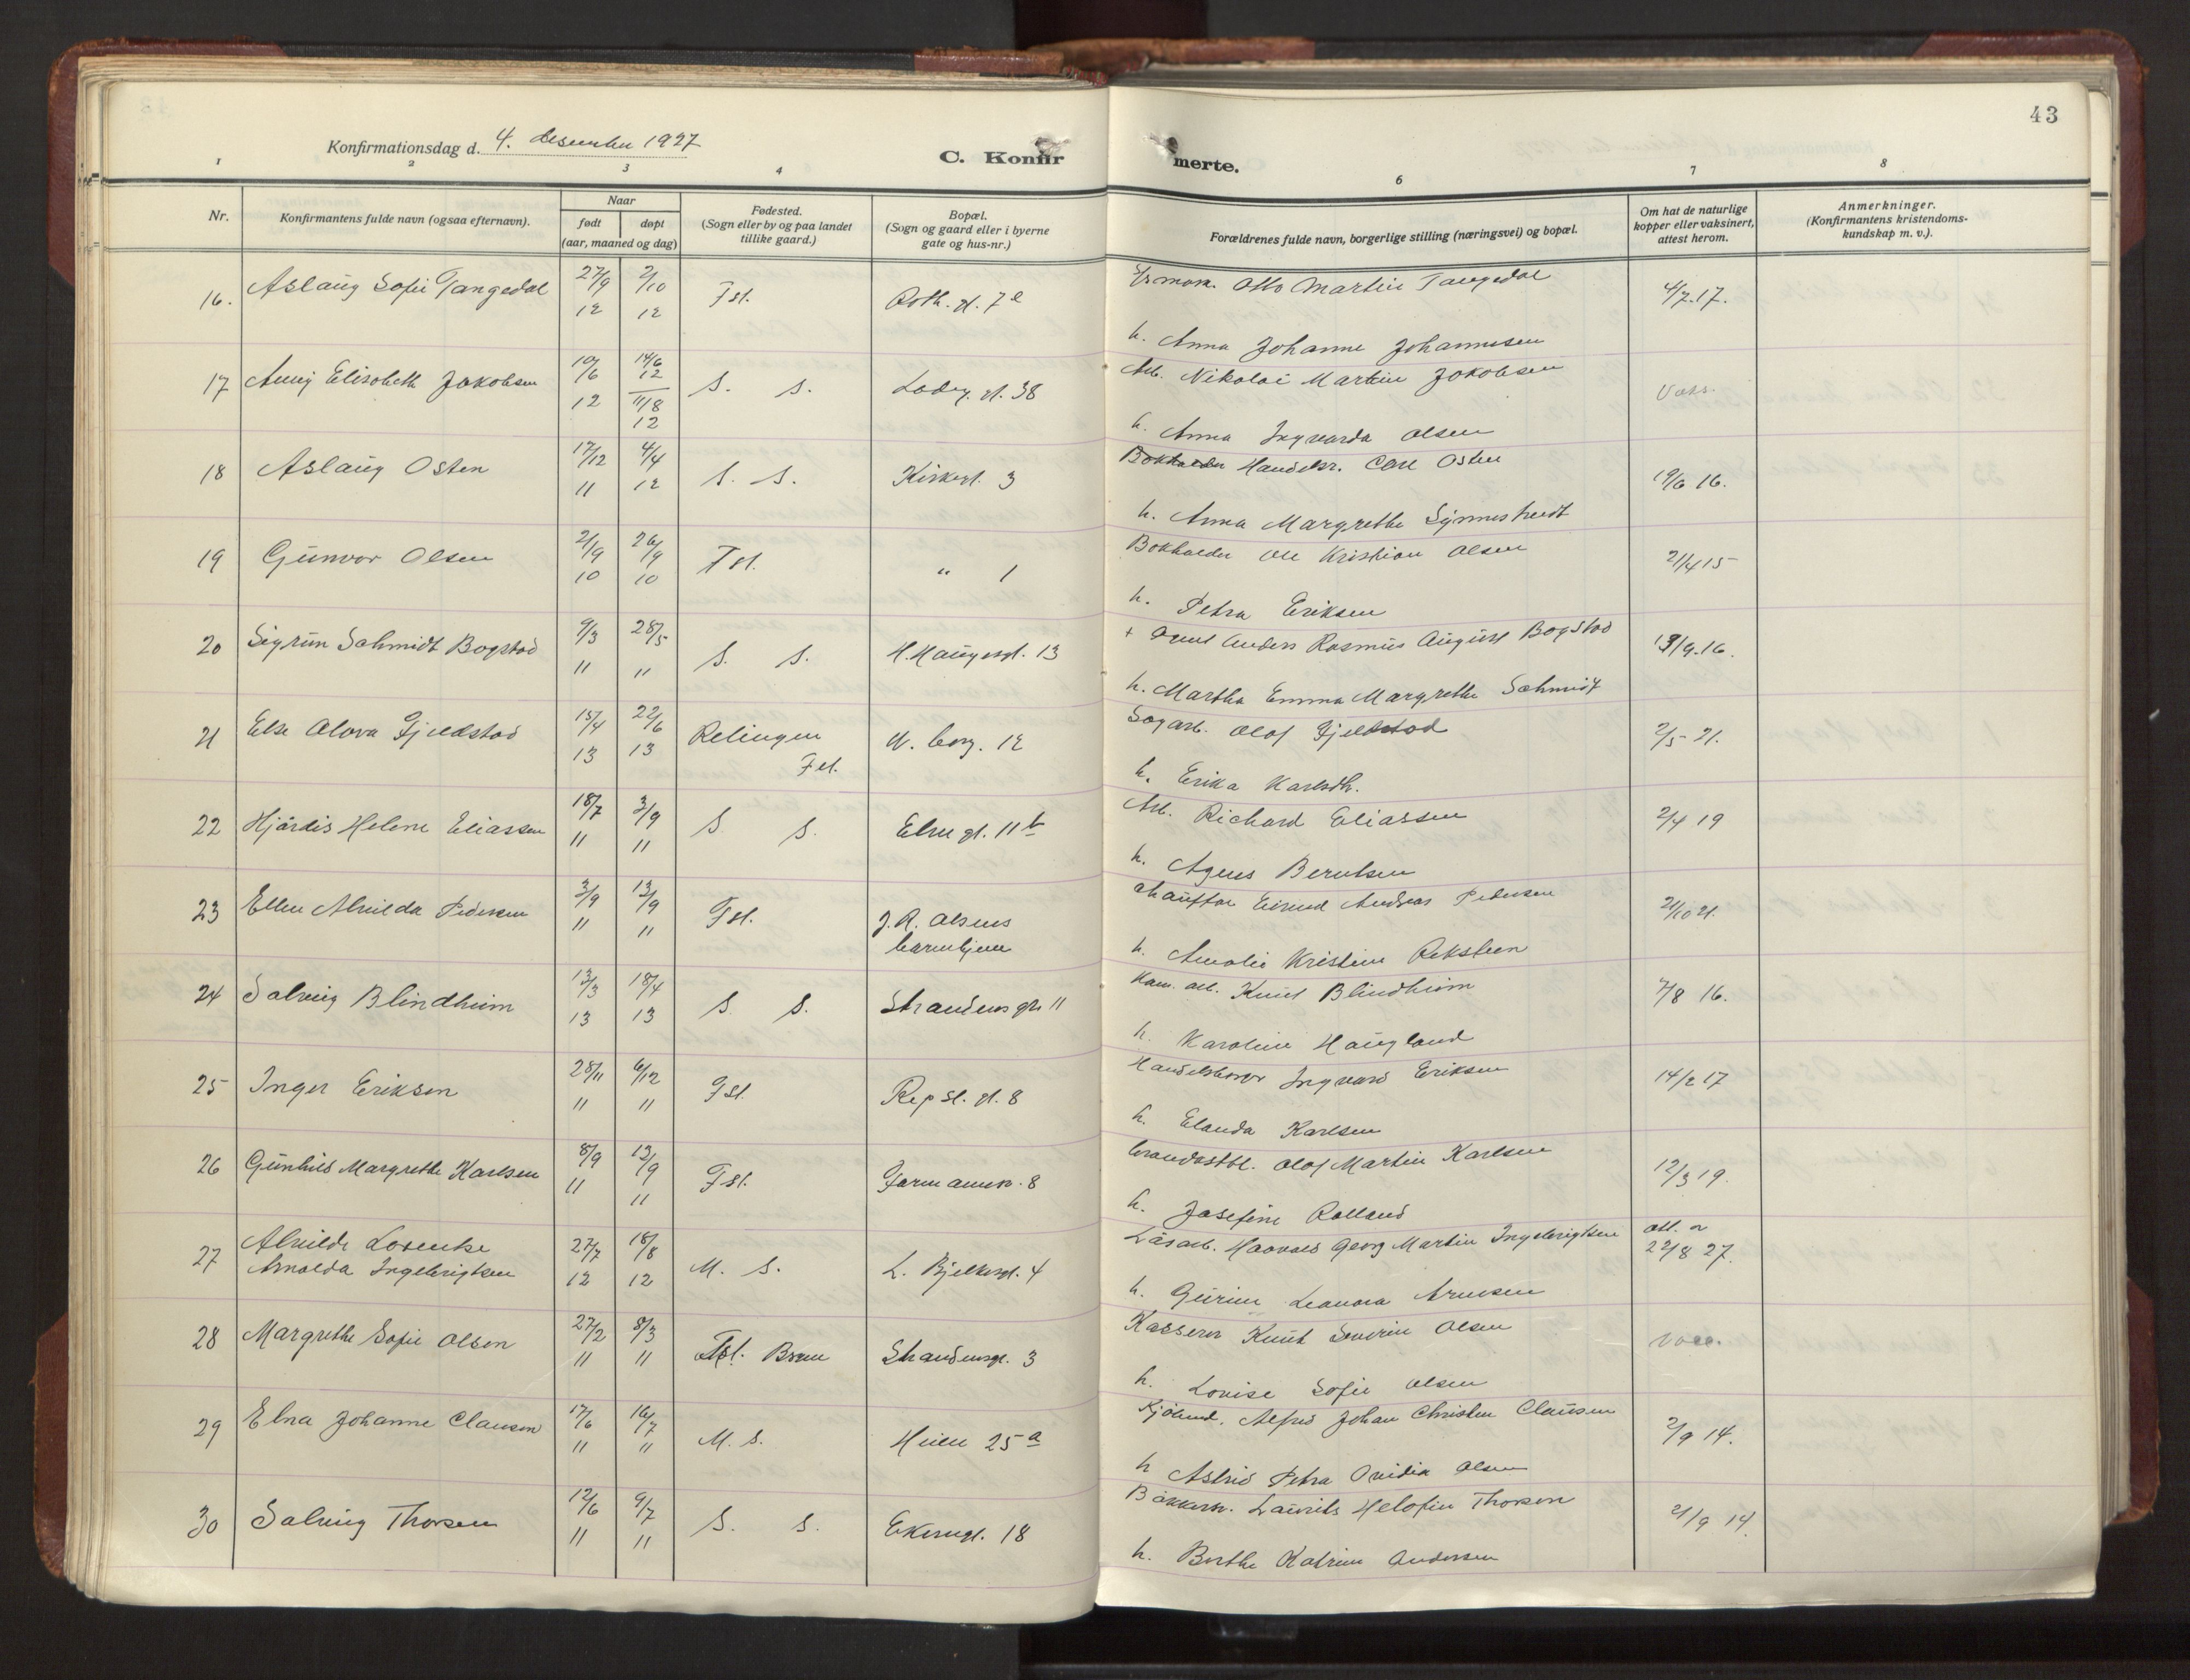 43
Konfirmationsdag d. 4. desember 1927
C. Konfir
merte.
1 2 3 4 6 7 8
Nr.
Konfirmantens fulde navn (ogsaa efternavn).
Naar
født døpt
(aar, maaned og dag)
Fødested.
(Sogn eller by og paa landet
tillike gaard.)
Bopæl.
(Sogn og gaard eller i byerne
gate og hus-nr.)
Forældrenes fulde navn, borgerlige stilling (næringsvei) og bopæl.
Om hat de naturlige
kopper eller vaksinert,
attest herom.
Anmerkninger.
(Konfirmantens kristendoms-
kundskap m. v.).
16. Aslaug Sofie Tangedal 27/9 12 2/10 12 Fst. Roth. gt. 7 e Otto Martin Tangedal 4/7.17.
h. Anna Johanne Johannesen
17 Anny Elisabeth Jakobsen 10/6 12 14/6 12 11/8 12 S. S. Lodg. gt. 38 Arb. Nikolai Martin Jakobsen Vaks.
h. Anna Ingvarda Olsen
18 Aslaug Osten 17/12 11 4/4 12 S. S. Kirkegt. 3 Bokholder Handelsr. Carl Osten 19/6 16.
h. Anna Margrethe Synnestvedt
19 Gunvor Olsen 2/9 10 26/9 10 Fst. " 1 Bokholder Ole Kristian Olsen 21/4 15
h. Petra Eriksen
20 Sigrun Schmidt Bogstad 9/3 11 28/5 11 S. S. H. Haugesgt. 13 + Anders Rasmus August Bogstad 19/9.16.
h. Martha Emma Margrethe Schmidt
21 Else Olava Fjeldstad 15/4 13 22/6 13 Relingen N. berg. 12 Sagarb. Olaf Fjeldstad 2/5 21.
Fet.
h. Erika Karlsdtr.
22 Hjørdis Helene Eliassen 18/7 11 3/9 11 S S. gt. 11 b Arb. Richard Eliassen 2/4 19
h. Agnes Berntsen
23 Ellen Alvilda Pedersen 3/9 11 13/9 11 Fst. J. R. Olsens chauffør Eivind Andreas Pedersen 21/10 21.
barnhjem
h. Amalie Kristine Reksteen
24 Solveig Blindheim 13/3 13 18/4 13 S S. Strandens gt. 11 Knut Blindheim 7/8 16.
h. Karoline Haugland
25 Inger Eriksen 28/11 11 6/12 11 Fst. Repsl. gt. 8 Handelsborger Ingvard Eriksen 14/2 17
h. Elanda Karlsen
26 Gunhild Margrethe Karlsen 8/9 11 13/9 11 Fst. Farmannsv. 8 Brandkstbl. Olaf Martin Karlsen 12/3 19.
h. Josefine Rolland
27 Alvilde Lorentse 27/7 12 18/8 12 M. S. L. Bjelkesgt. 4 Harald Georg Martin Ingebrigtsen att. a
Arnolda Ingebrigtsen 22/8 27.
h. Leonora Arnesen
28 Margrethe Sofie Olsen 27/2 11 8/3 11 Fst. Strandensgt. 3 Kasserer Knut Severin Olsen vacc.
h. Lovise Sofie Olsen
29 Elna Johanne Clausen 17/6 11 16/7 11 M. S. Heien 25 a Kjøbmd. Alfred Johan Christen Clausen 2/9 14.
h Astrid Petra Ovidia Olsen
30 Solveig Thorsen 12/6 11 9/7 11 S. S. Ekerngt. 18 Laurits Thorsen 21/9 14.
h. Berthe Katrine Andersen